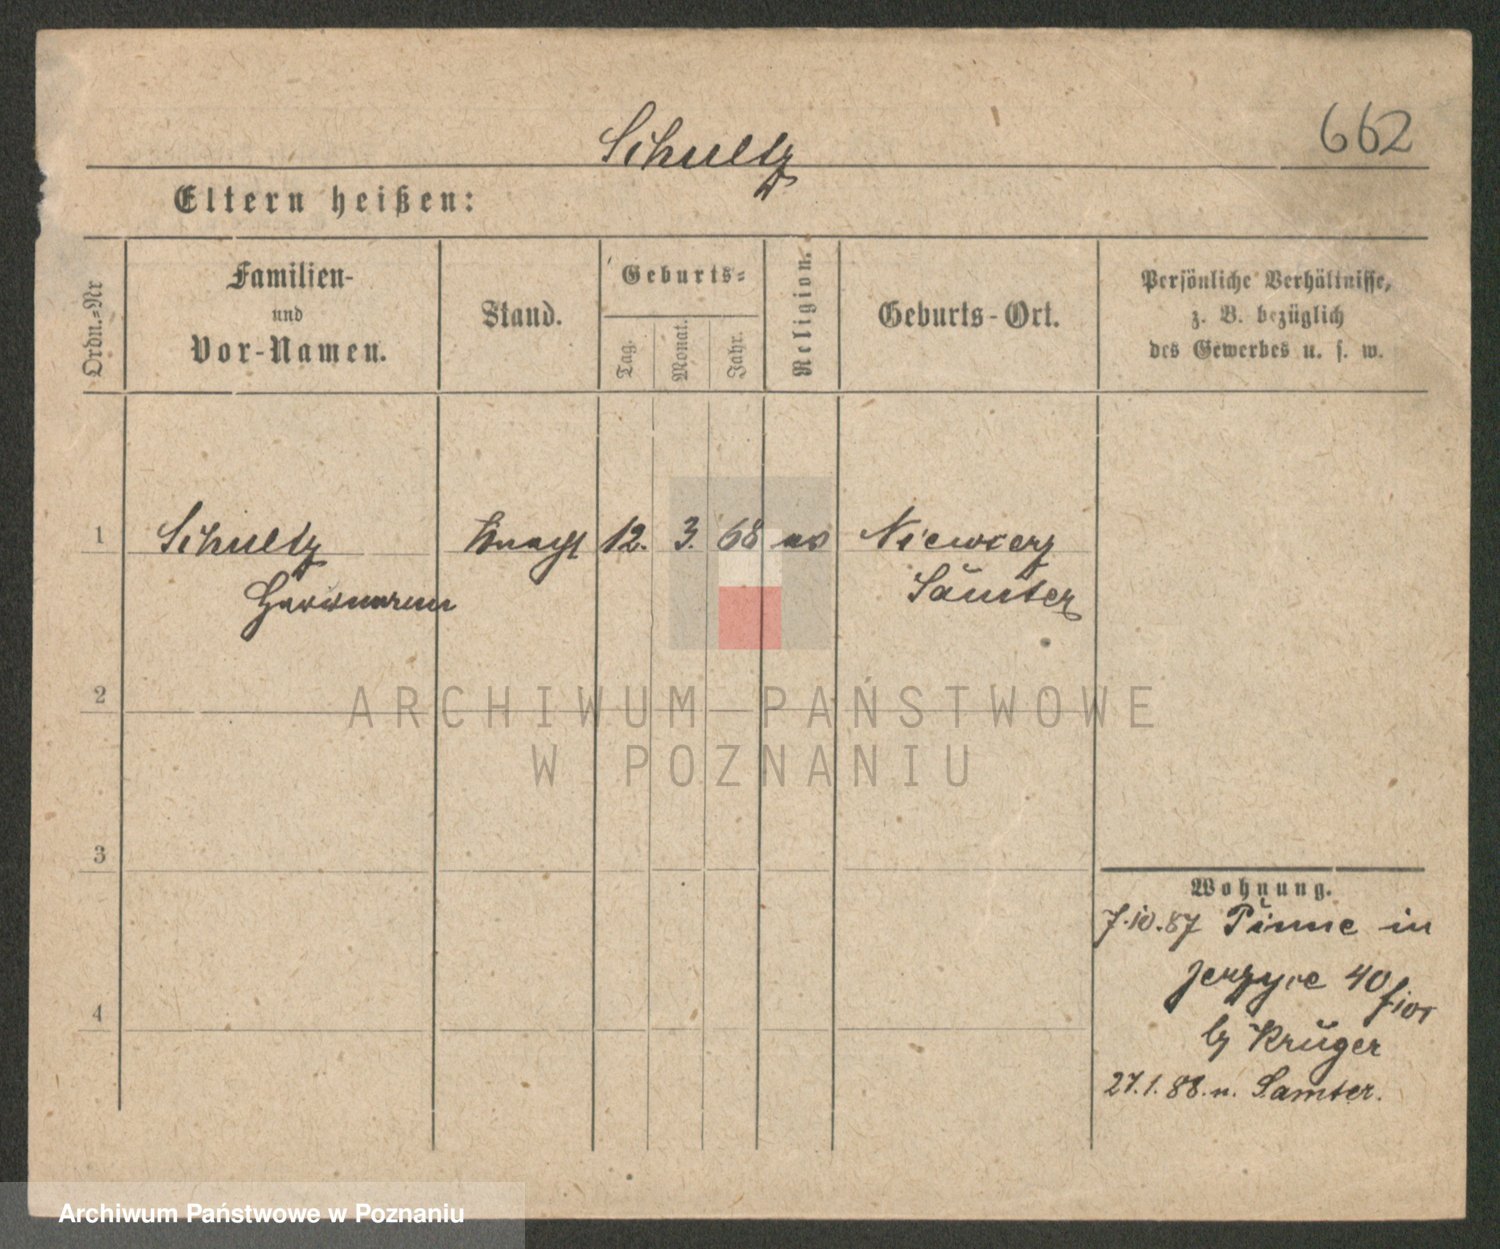 Schultz
662
Eltern heißen:
Ordn.-Nr
Familien-
und
Vor-Namen.
Stand.
Geburts-
Tag.
Monat.
Jahr.
Religion.
Geburts-Ort.
Persönliche Verhältnisse,
z. B. bezüglich
des Gewerbes u. s. w.
1
Schultz
Knecht
12.
3.
68
Hermann
Samter
2
ARCHIWUM PAŃSTWOWE
W POZNANIU
3
Wohnung.
7.10.87 Pinne in
Jerzyce 40
4
Krüger
27.1.88. n. Samter.
Archiwum Państwowe w Poznaniu